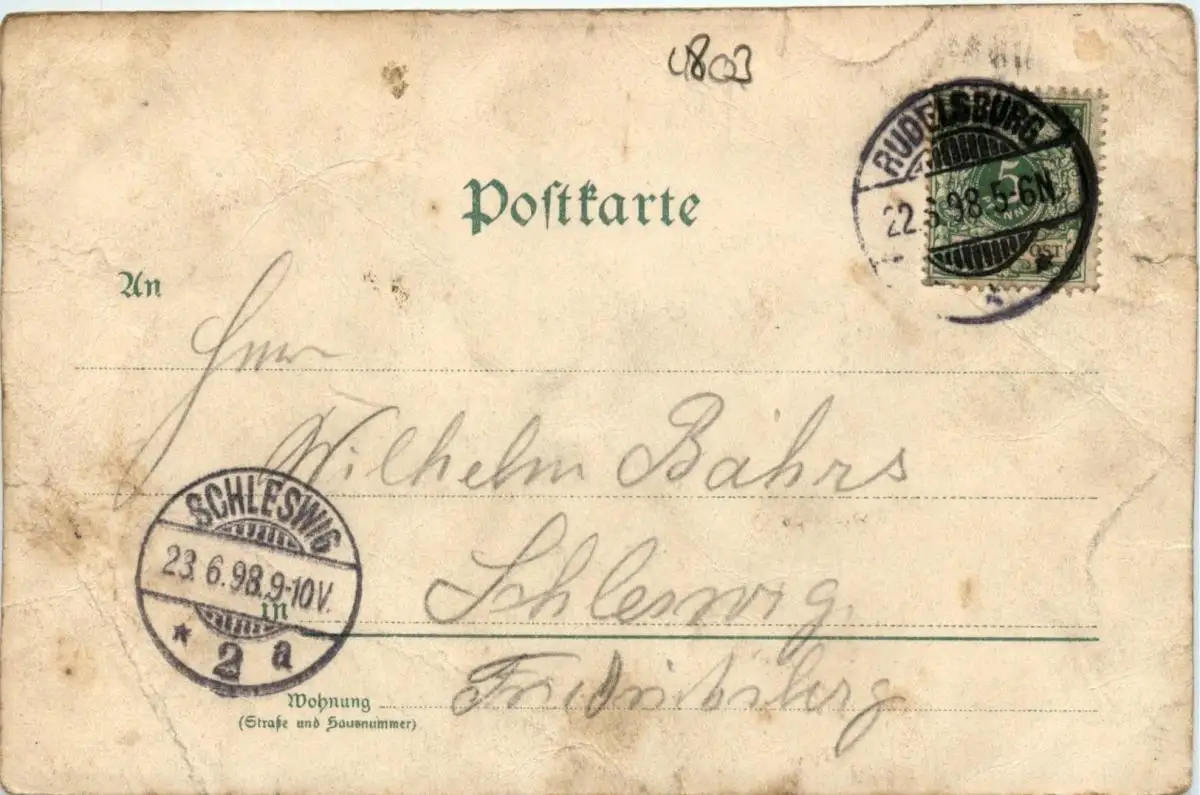 4803
RUDELSBURG
22.6.98.5-6N.
5
OST
Postkarte
An
Herrn
Wilhelm Bährs
Schleswig.
Friedrichsberg
SCHLESWIG
23.6.98.9-10V.
in
2 a
Wohnung
(Straße und Hausnummer)